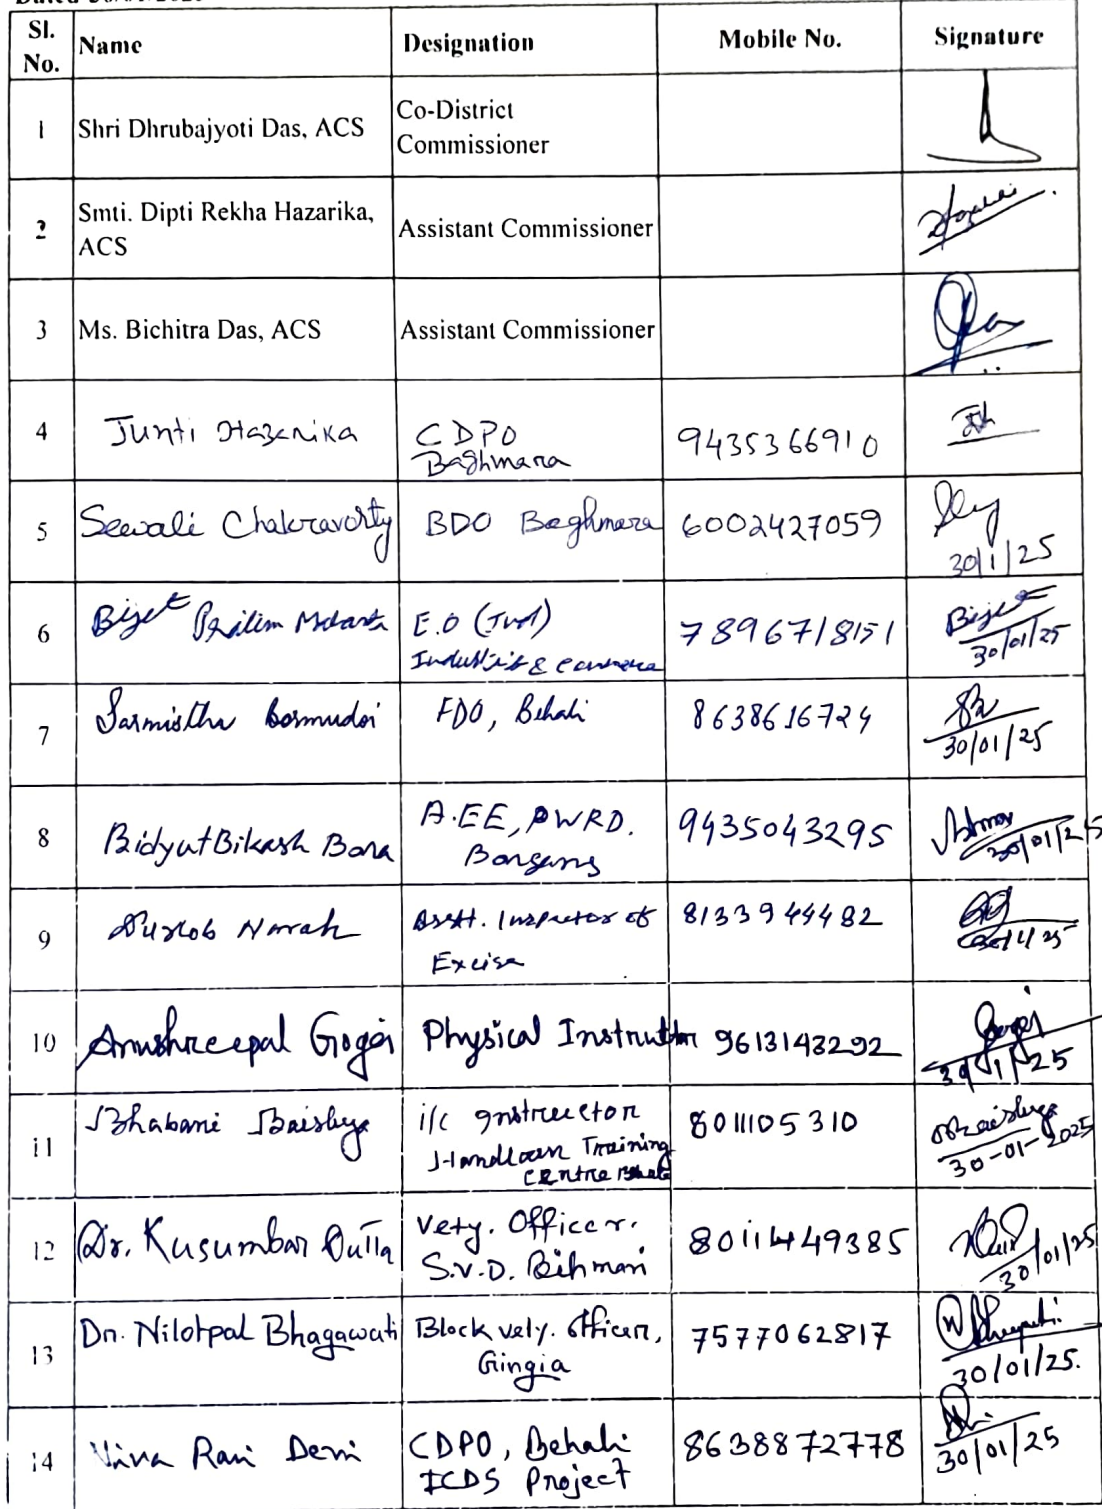 Sl. No. Name Designation Mobile No. Signature
1 Shri Dhrubajyoti Das, ACS Co-District Commissioner
2 Smti. Dipti Rekha Hazarika, ACS Assistant Commissioner
3 Ms. Bichitra Das, ACS Assistant Commissioner
4 Junti Hazarika CDPO Baghmara 9435366910
5 Sewali Chakravorty BDO Baghmara 6002427059 30/1/25
6 Bijet E.O (Ind) Industries & Commerce 7896718151 Bijet 30/01/25
7 Sarmistha Bormudoi FDO, Behali 8638616724 30/01/25
8 Bidyut Bikash Bora A.EE, PWRD. Borgang 9435043295 30/01/25
9 Narah Asstt. Inspector of Excise 8133944482
10 Anushreepal Gogoi Physical Instructor 9613143292 Gogoi 30/1/25
11 Bhabani Baishya i/c Instructor Handloom Training Centre 8011105310 Baishya 30-01-2025
12 Dr. Kusumbar Dutta Vety. Officer. S.V.D. Bihmari 8011449385 30/01/25
13 Dr. Nilotpal Bhagawati Block vety. officer, Gingia 7577062817 30/01/25.
14 Rani Devi CDPO, Behali ICDS Project 8638872778 30/01/25